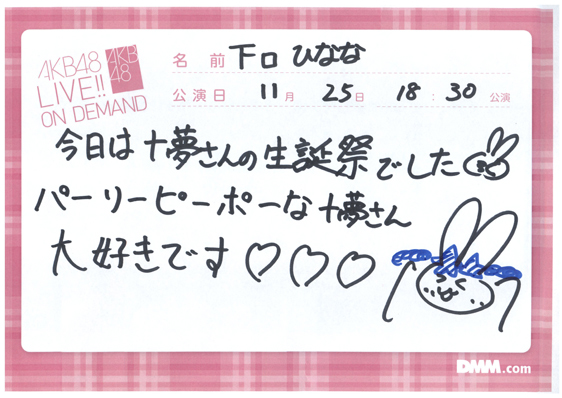 AKB48
LIVE!!
ON DEMAND
AKB
48
名 前 下口 ひなな
公演日 11月 25日 18:30 公演
今日は十夢さんの生誕祭でした
パーリーピーポーな十夢さん
大好きです♡♡♡
DMM.com